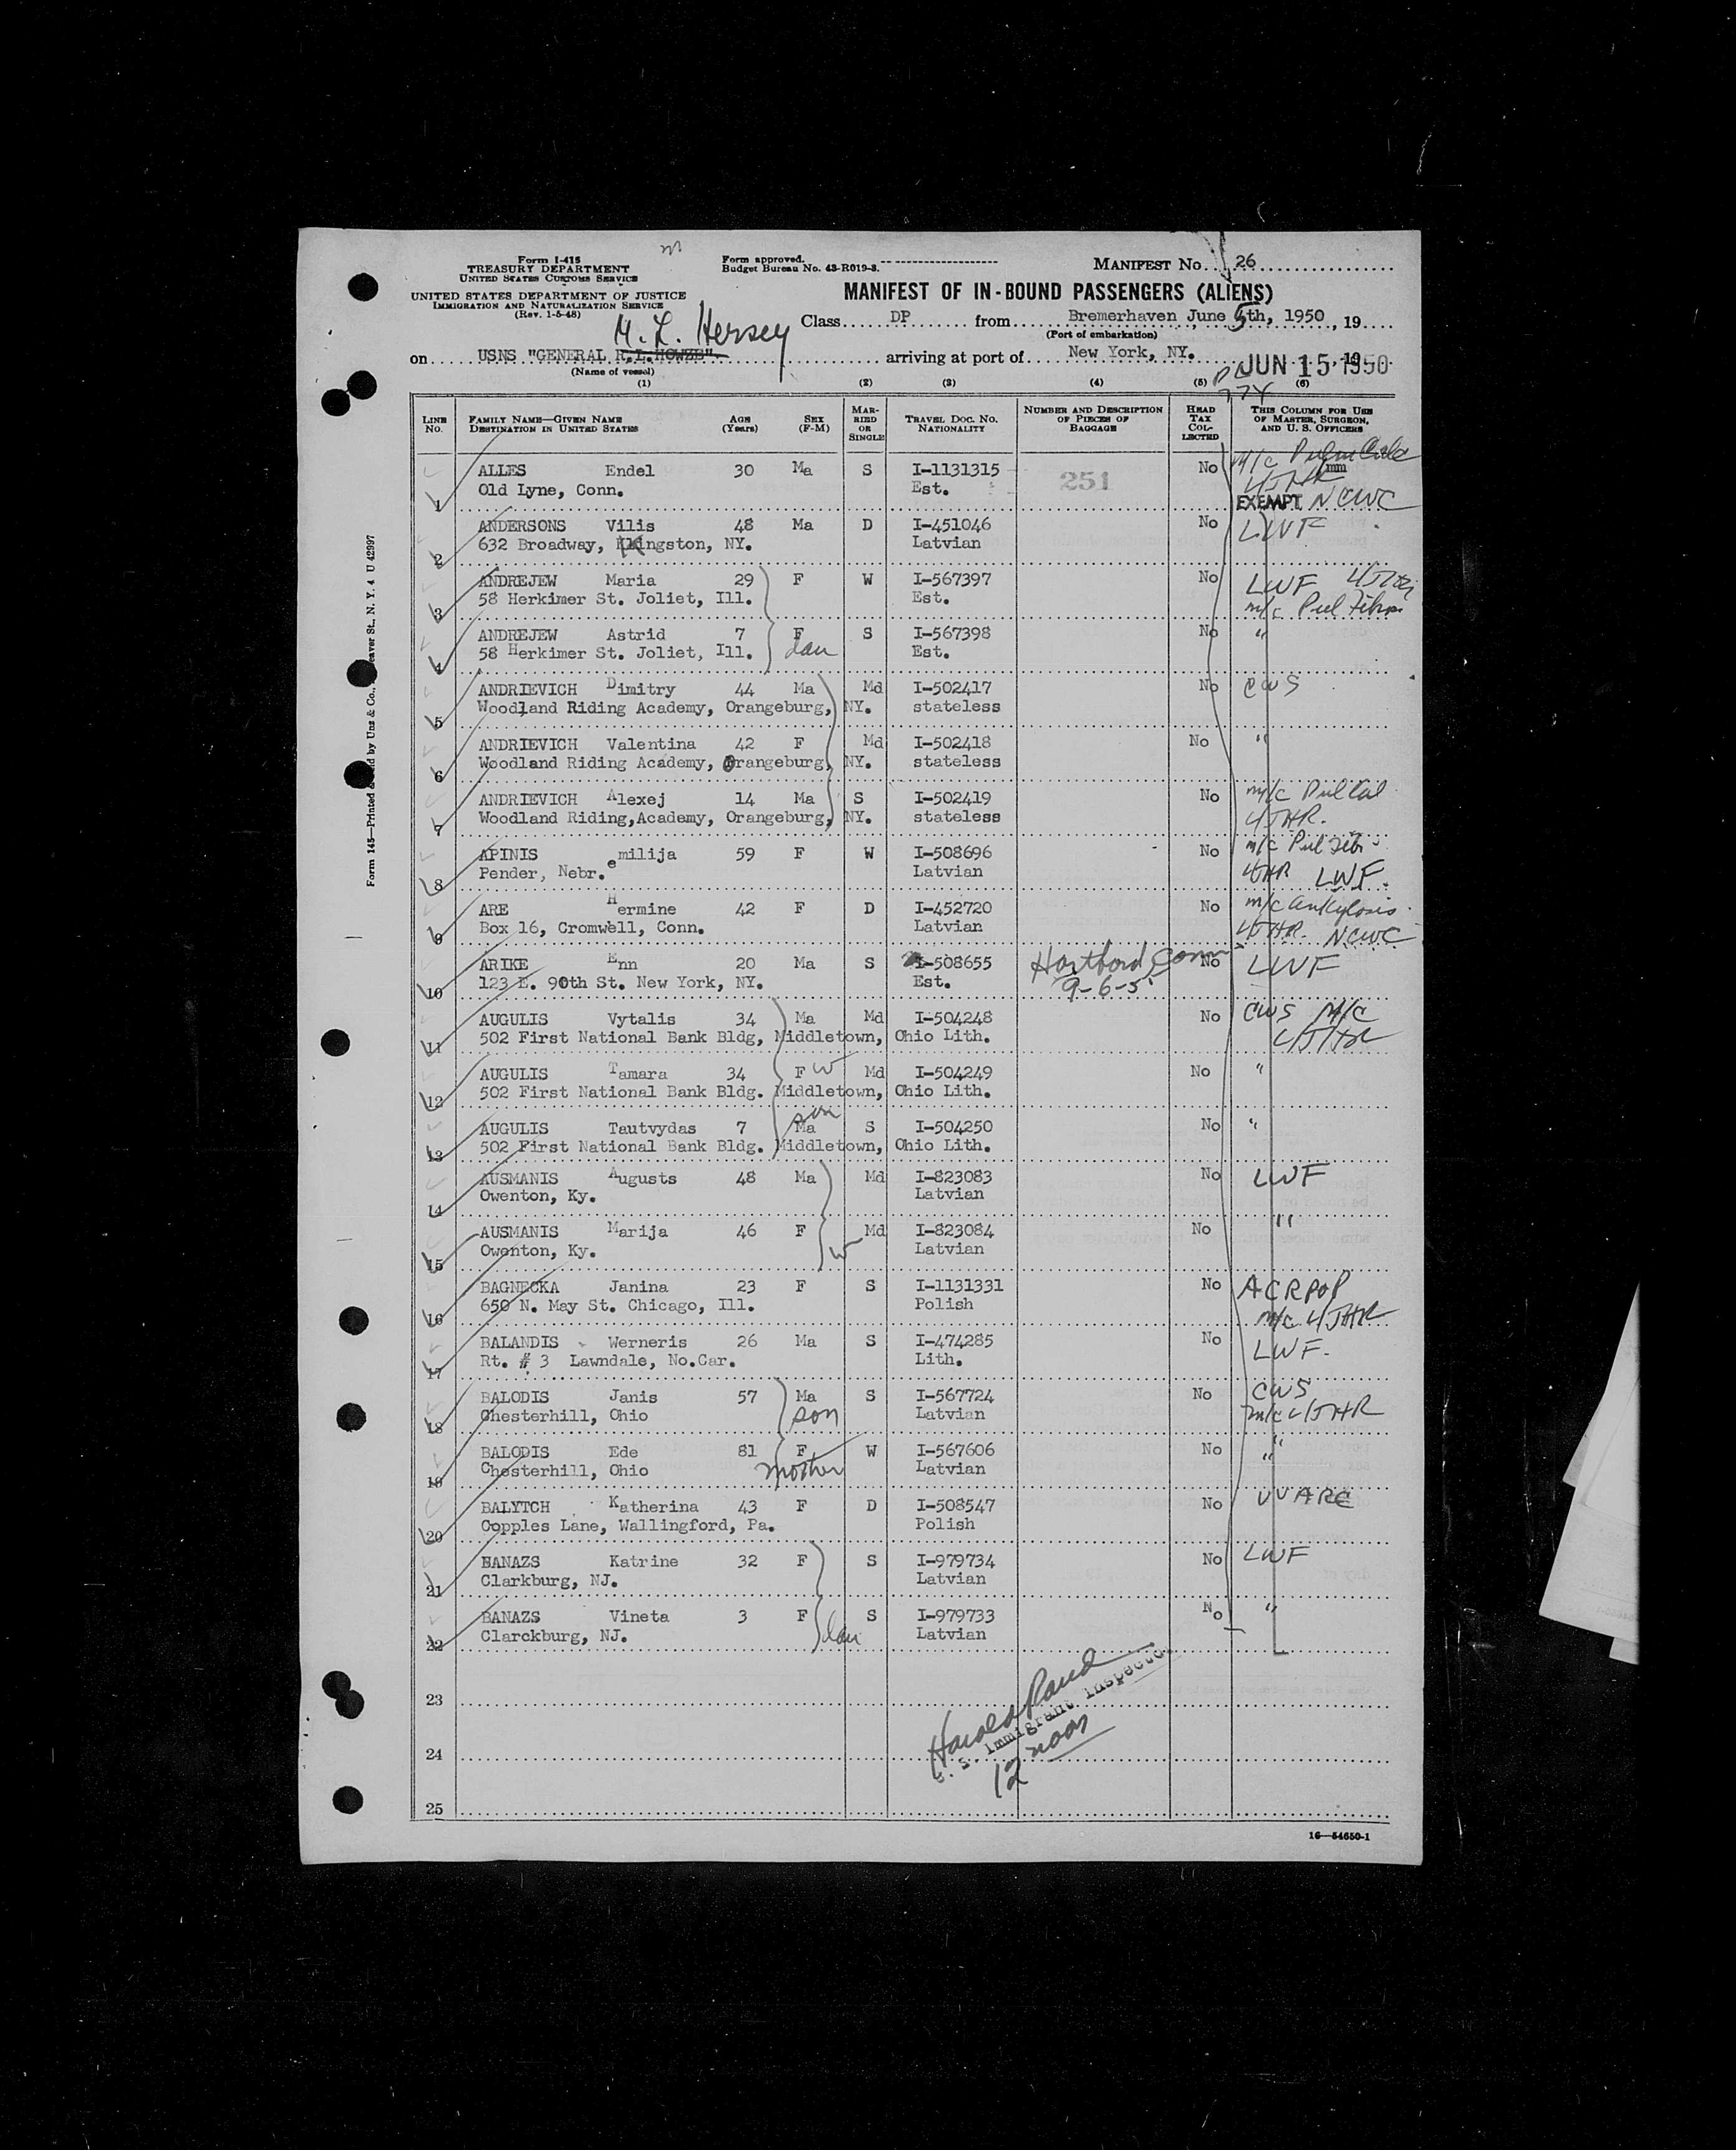 Form I-415
TREASURY DEPARTMENT
UNITED STATES CUSTOMS SERVICE
UNITED STATES DEPARTMENT OF JUSTICE
IMMIGRATION AND NATURALIZATION SERVICE
(Rev. 1-5-48)
Form approved.
Budget Bureau No. 43-R019-3.
MANIFEST No. 26
MANIFEST OF IN-BOUND PASSENGERS (ALIENS)
Class DP from Bremerhaven June 5th, 1950, 19
(Port of embarkation)
M. L. Hersey
on USNS "GENERAL R.L.HOWZE" arriving at port of New York, NY. JUN 15 1950, 19
(Name of vessel)
(1) (2) (3) (4) (5) (6)
LINE No. FAMILY NAME—GIVEN NAME DESTINATION IN UNITED STATES AGE (Years) SEX (F-M) MARRIED OR SINGLE TRAVEL DOC. NO. NATIONALITY NUMBER AND DESCRIPTION OF PIECES OF BAGGAGE HEAD TAX COLLECTED THIS COLUMN FOR USE OF MASTER, SURGEON, AND U. S. OFFICERS
1 ALLES Endel 30 Ma S I-1131315 251 No m/c
Old Lyne, Conn. Est. EXEMPT NCWC
2 ANDERSONS Vilis 48 Ma D I-451046 No LWF
632 Broadway, Kingston, NY. Latvian
3 ANDREJEW Maria 29 F W I-567397 No LWF 4JHR
58 Herkimer St. Joliet, Ill. Est. m/c Pul
4 ANDREJEW Astrid 7 F S I-567398 No "
58 Herkimer St. Joliet, Ill. dau Est.
5 ANDRIEVICH Dimitry 44 Ma Md I-502417 No CWS
Woodland Riding Academy, Orangeburg, NY. stateless
6 ANDRIEVICH Valentina 42 F Md I-502418 No "
Woodland Riding Academy, Orangeburg, NY. stateless
7 ANDRIEVICH Alexej 14 Ma S I-502419 No m/c Pul Cal
Woodland Riding,Academy, Orangeburg, NY. stateless 4JHR.
8 APINIS emilija 59 F W I-508696 No m/c Pul
Pender, Nebr. Latvian 4JHR LWF.
9 ARE Hermine 42 F D I-452720 No m/c ankylosis
Box 16, Cromwell, Conn. Latvian 4JHR. NCWC
10 ARIKE Enn 20 Ma S I-508655 Hartford, Conn No LWF
123 E. 90th St. New York, NY. Est. 9-6-5
11 AUGULIS Vytalis 34 Ma Md I-504248 No CWS M/C
502 First National Bank Bldg, Middletown, Ohio Lith. 4JHR
12 AUGULIS Tamara 34 F w Md I-504249 No "
502 First National Bank Bldg. Middletown, Ohio Lith.
13 AUGULIS Tautvydas 7 Ma son S I-504250 No "
502 First National Bank Bldg. Middletown, Ohio Lith.
14 AUSMANIS Augusts 48 Ma Md I-823083 No LWF
Owenton, Ky. Latvian
15 AUSMANIS Marija 46 F Md I-823084 No "
Owenton, Ky. w Latvian
16 BAGNECKA Janina 23 F S I-1131331 No ACRPOP
650 N. May St. Chicago, Ill. Polish m/c 4JHR
17 BALANDIS Werneris 26 Ma S I-474285 No LWF.
Rt. # 3 Lawndale, No.Car. Lith.
18 BALODIS Janis 57 Ma S I-567724 No CWS
Chesterhill, Ohio son Latvian m/c 4JHR
19 BALODIS Ede 81 F W I-567606 No "
Chesterhill, Ohio mother Latvian
20 BALYTCH Katherina 43 F D I-508547 No UUARC
Copples Lane, Wallingford, Pa. Polish
21 BANAZS Katrine 32 F S I-979734 No LWF
Clarkburg, NJ. Latvian
22 BANAZS Vineta 3 F S I-979733 No "
Clarckburg, NJ. dau Latvian
23
24
25
Harold Rand
U. S. Immigrant Inspector
12 noon
16—54650-1